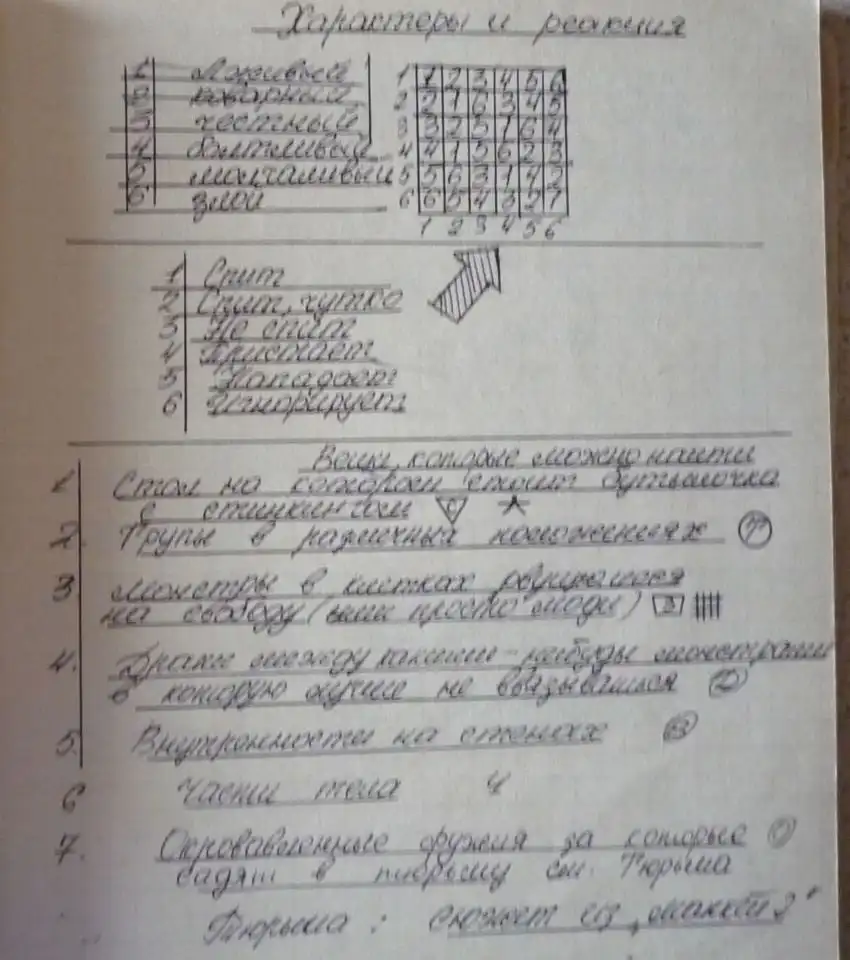 Характеры и реакция
1 Лживый
2 коварный
3 честный
4 болтливый
5 молчаливый
6 злой
1 1 2 3 4 5 6
2 2 1 6 3 4 5
3 3 2 5 1 6 4
4 4 1 5 6 2 3
5 5 6 3 1 4 2
6 6 5 4 3 2 1
1 2 3 4 5 6
1 Спит
2 Спит, чутко
3 Не спит
4 Пристает
5 Нападает
6 Игнорирует
Вещи, которые можно найти
1 Стол на котором стоит бутылочка
с стинкингом С
2. Трупы в различных положениях Т
3 Монстры в клетках рвущиеся
на свободу (или просто люди) З
4. Драки между какими-нибудь монстрами
в которую лучше не ввязываться
5. Внутренности на стенах
6 Части тела Ч
7. Окровавленные оружия за которые О
садят в тюрьму см. Тюрьма
Тюрьма: сюжет из "